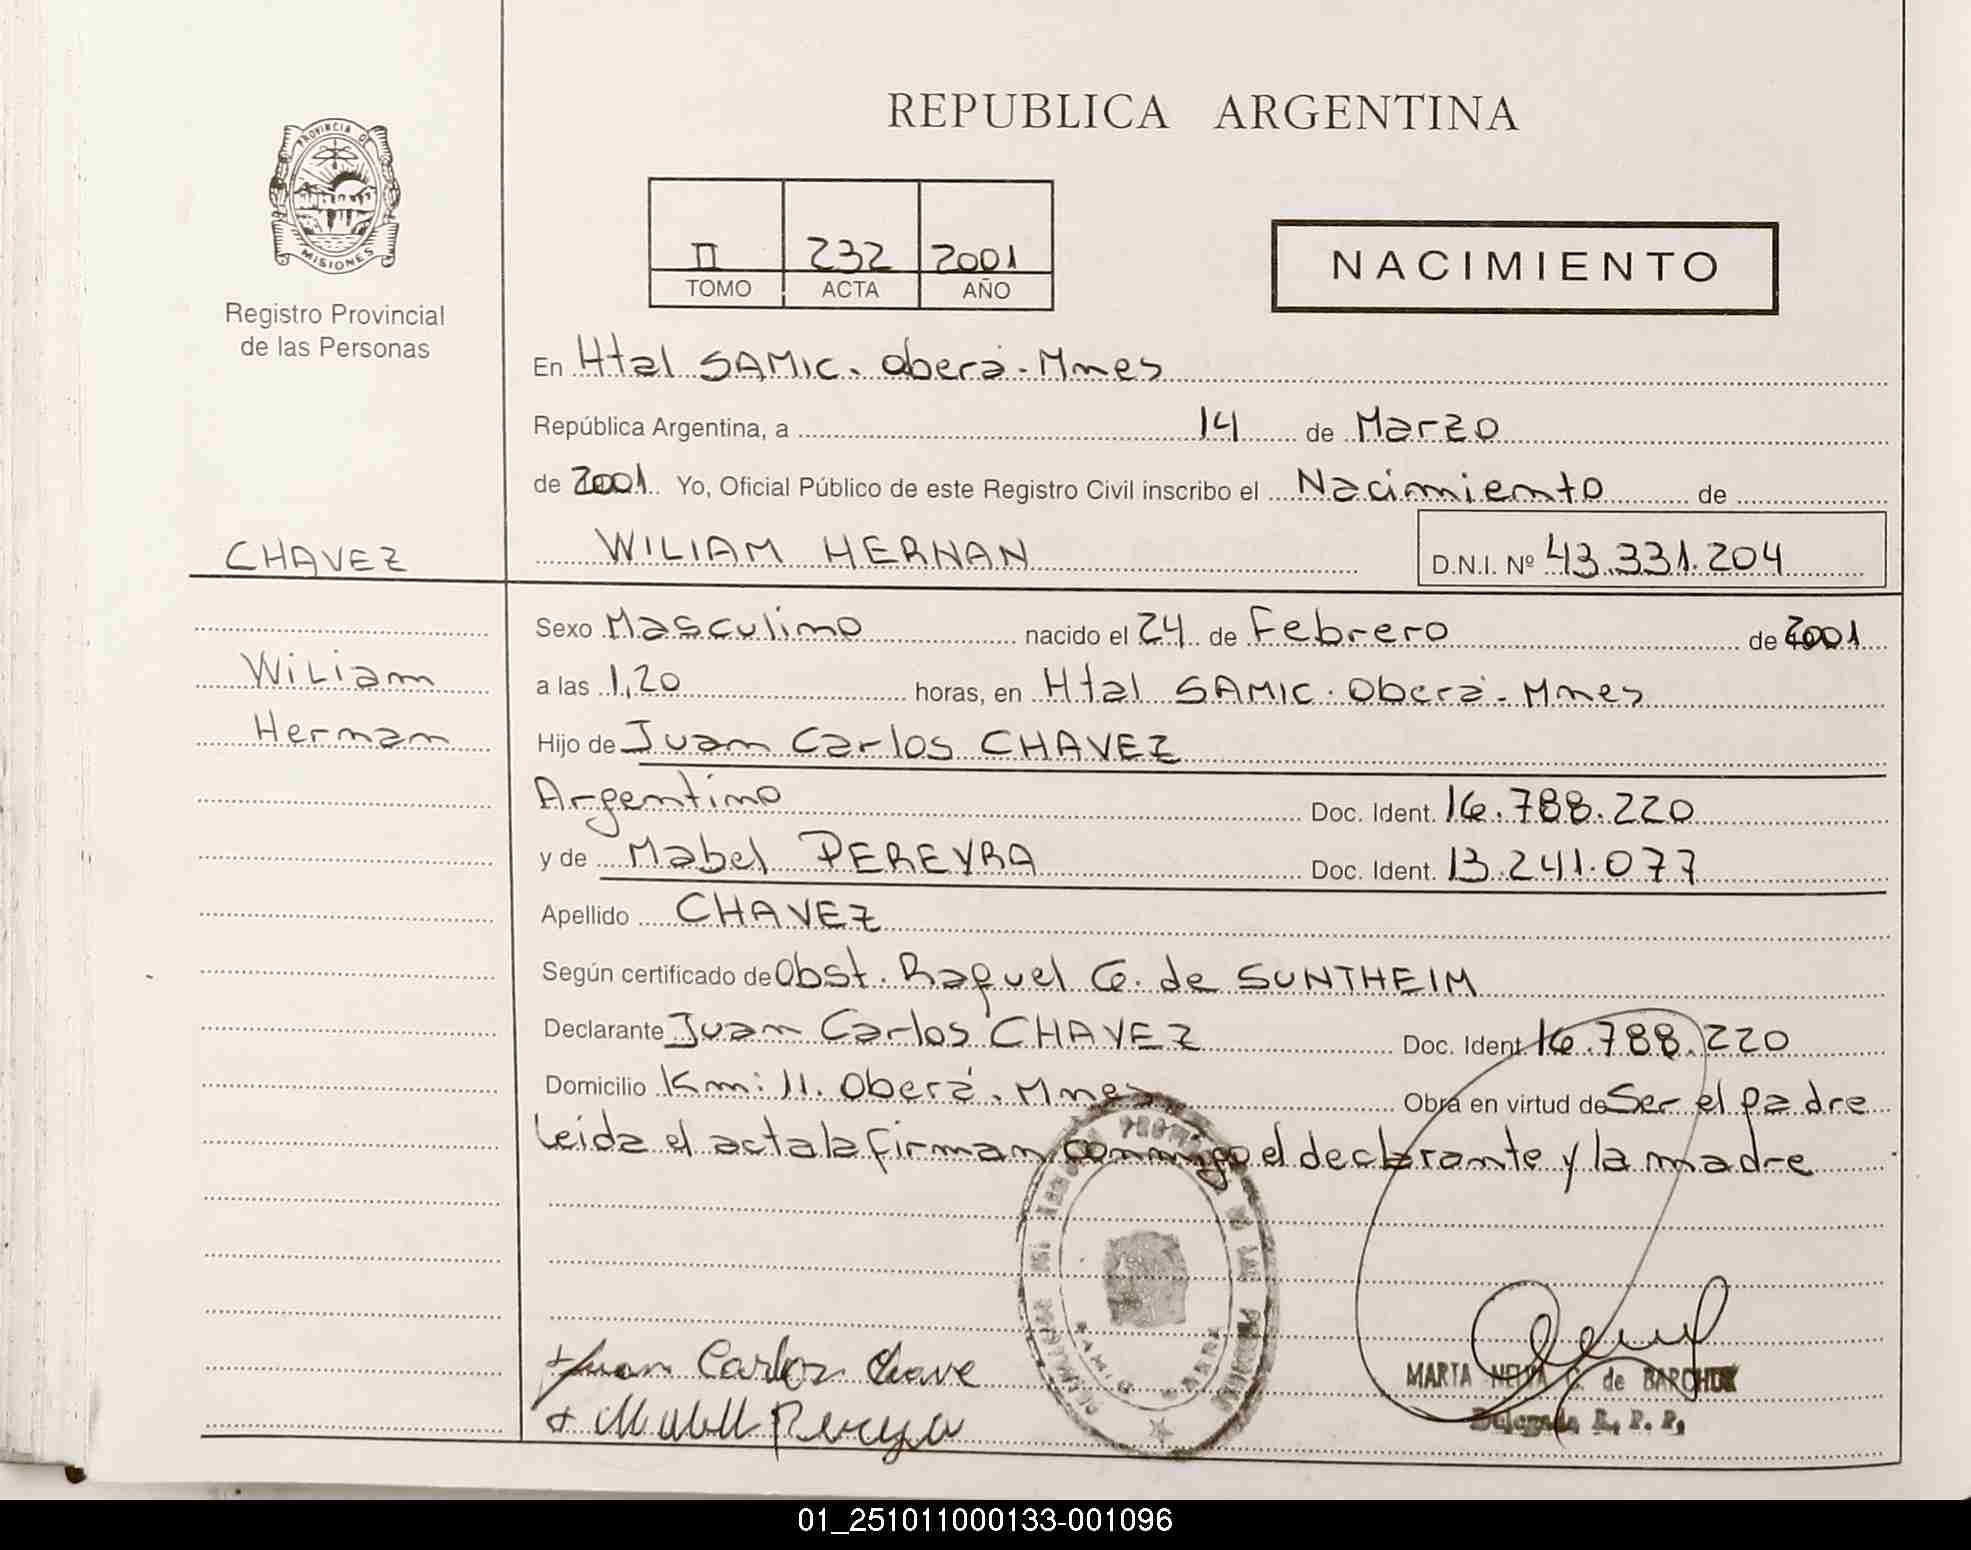 REPUBLICA ARGENTINA
PROVINCIA DE
MISIONES
Registro Provincial
de las Personas
II 232 2001
TOMO ACTA AÑO
NACIMIENTO
En Htal SAMIC. Oberá - Mnes
República Argentina, a 14 de Marzo
de 2001 Yo, Oficial Público de este Registro Civil inscribo el Nacimiento de
CHAVEZ WILIAM HERNAN D.N.I. Nº 43.331.204
Sexo Masculino nacido el 24 de Febrero de 2001
Wiliam
a las 1,20 horas, en Htal SAMIC. Oberá - Mnes
Hernan
Hijo de Juan Carlos CHAVEZ
Argentino Doc. Ident. 16.788.220
y de Mabel PEREYRA Doc. Ident. 13.241.077
Apellido CHAVEZ
Según certificado de Obst. Raquel G. de SUNTHEIM
Declarante Juan Carlos CHAVEZ Doc. Ident. 16.788.220
Domicilio Km: 11. Oberá. Mnes Obra en virtud de Ser el padre
Leida el acta la firman conmigo el declarante y la madre
Juan Carlos Chave
MARTA de BARCHUK
Delegada R. P. P.
Pereyra
01_251011000133-001096